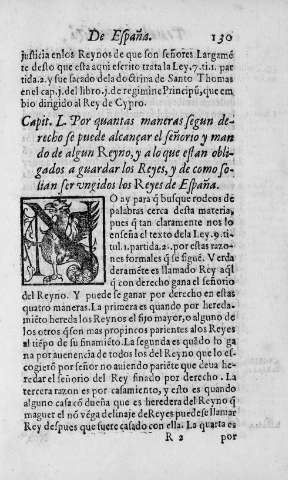 De España. 130
justicia enlos Reynos de que son señores Largamẽ
te desto que esta aqui escrito trata la Ley. 7. ti. 1. par
tida. 2. y fue sacado dela doctrina de Santo Thomas
en el cap. j. del libro. j. de regimine Principũ, que em
bio dirigido al Rey de Cypro.
Capit. L. Por quantas maneras segun de
recho se puede alcançar el señorio y man
do de algun Reyno, y a lo que estan obli
gados a guardar los Reyes, y de como so
lian ser vngidos los Reyes de España.
NO ay para q̃ busque rodeos de
palabras cerca desta materia,
pues q̃ tan claramente nos lo
enseña el texto dela Ley. 9. ti-
tul. 1. partida. 2. por estas razo-
nes formales q̃ se siguẽ. Y erda
deramẽte es llamado Rey aq̃l
q̃ con derecho gana el señorio
del Reyno. Y puede se ganar por derecho en estas
quatro maneras. La primera es quando por hereda-
miẽto hereda los Reynos el fijo mayor, o alguno de
los otros q̃ son mas propincos parientes alos Reyes
al tiẽpo de su finamiẽto. La segunda es quãdo lo ga
na por auenencia de todos los del Reyno que lo es-
cogierõ por señor no auiendo pariẽte que deua he-
redar el señorio del Rey finado por derecho. La
tercera razon es por casamiento, y esto es quando
alguno casa cõ dueña que es heredera del Reyno, q̃
maguer el nõ vẽga del linaje de Reyes puede se llamar
Rey despues que fuere casado con ella. La quarta es
R 2 por